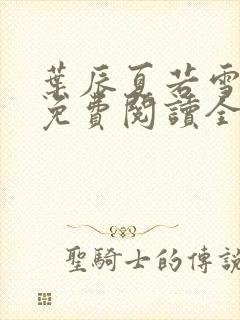 葉辰夏若雪
免費閱讀全
聖騎士的傳說